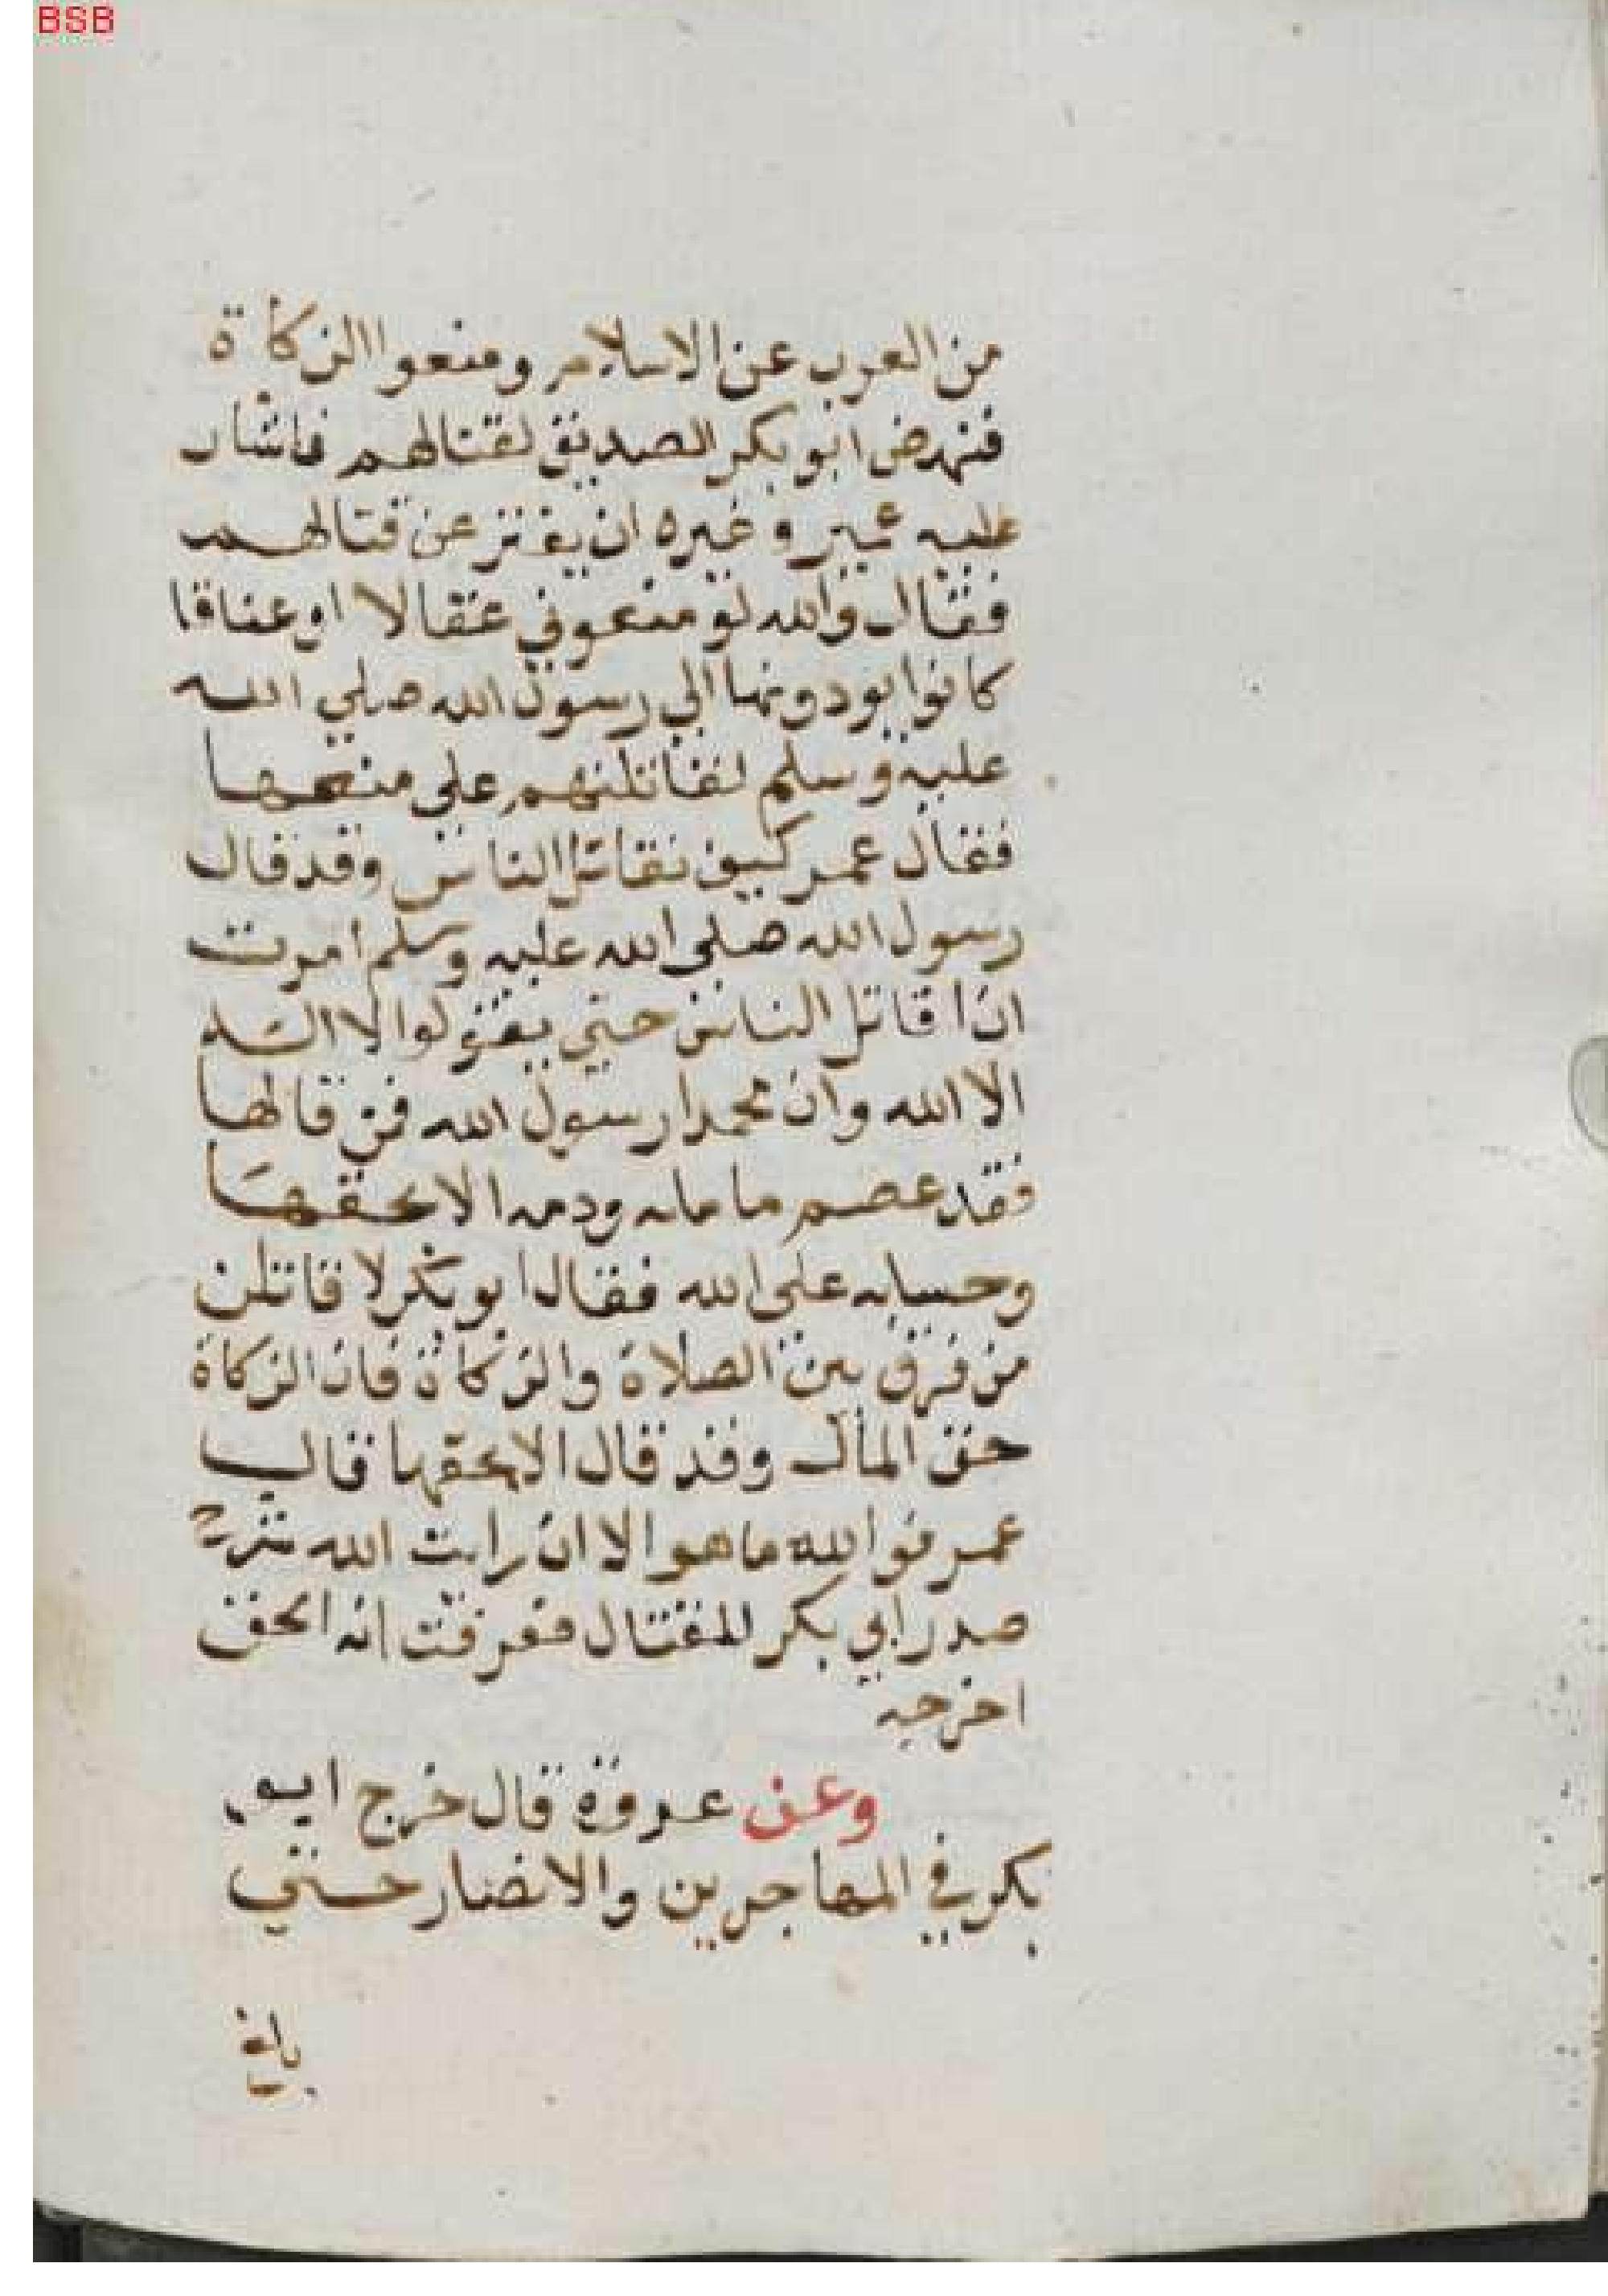 BSB
من العرب عن الاسلام ومنعوا الزكاة
فنهض ابو بكر الصديق لقتالهم فاشار
عليه عمر وغيره ان يفتر عن قتالهم
فقال والله لو منعوني عقالا او عناقا
كانوا يودونها الي رسول الله صلي الله
عليه وسلم لقاتلنهم على منعها
فقال عمر كيف نقاتل الناس وقد قال
رسول الله صلى الله عليه وسلم امرت
ان اقاتل الناس حتي يقولوا لا اله
الا الله وان محمدا رسول الله فمن قالها
فقد عصم ما ماله ودمه الا بحقها
وحسابه على الله فقال ابو بكر لا قاتلن
من فرق بين الصلاة والزكاة فان الزكاة
حق المال وقد قال الا بحقها قال
عمر فوالله ما هو الا ان رايت الله شرح
صدر ابي بكر للقتال فعرفت انه الحق
اخرجه
وعن عروة قال خرج ابو
بكر في المهاجرين والانصار حتي
بلغ